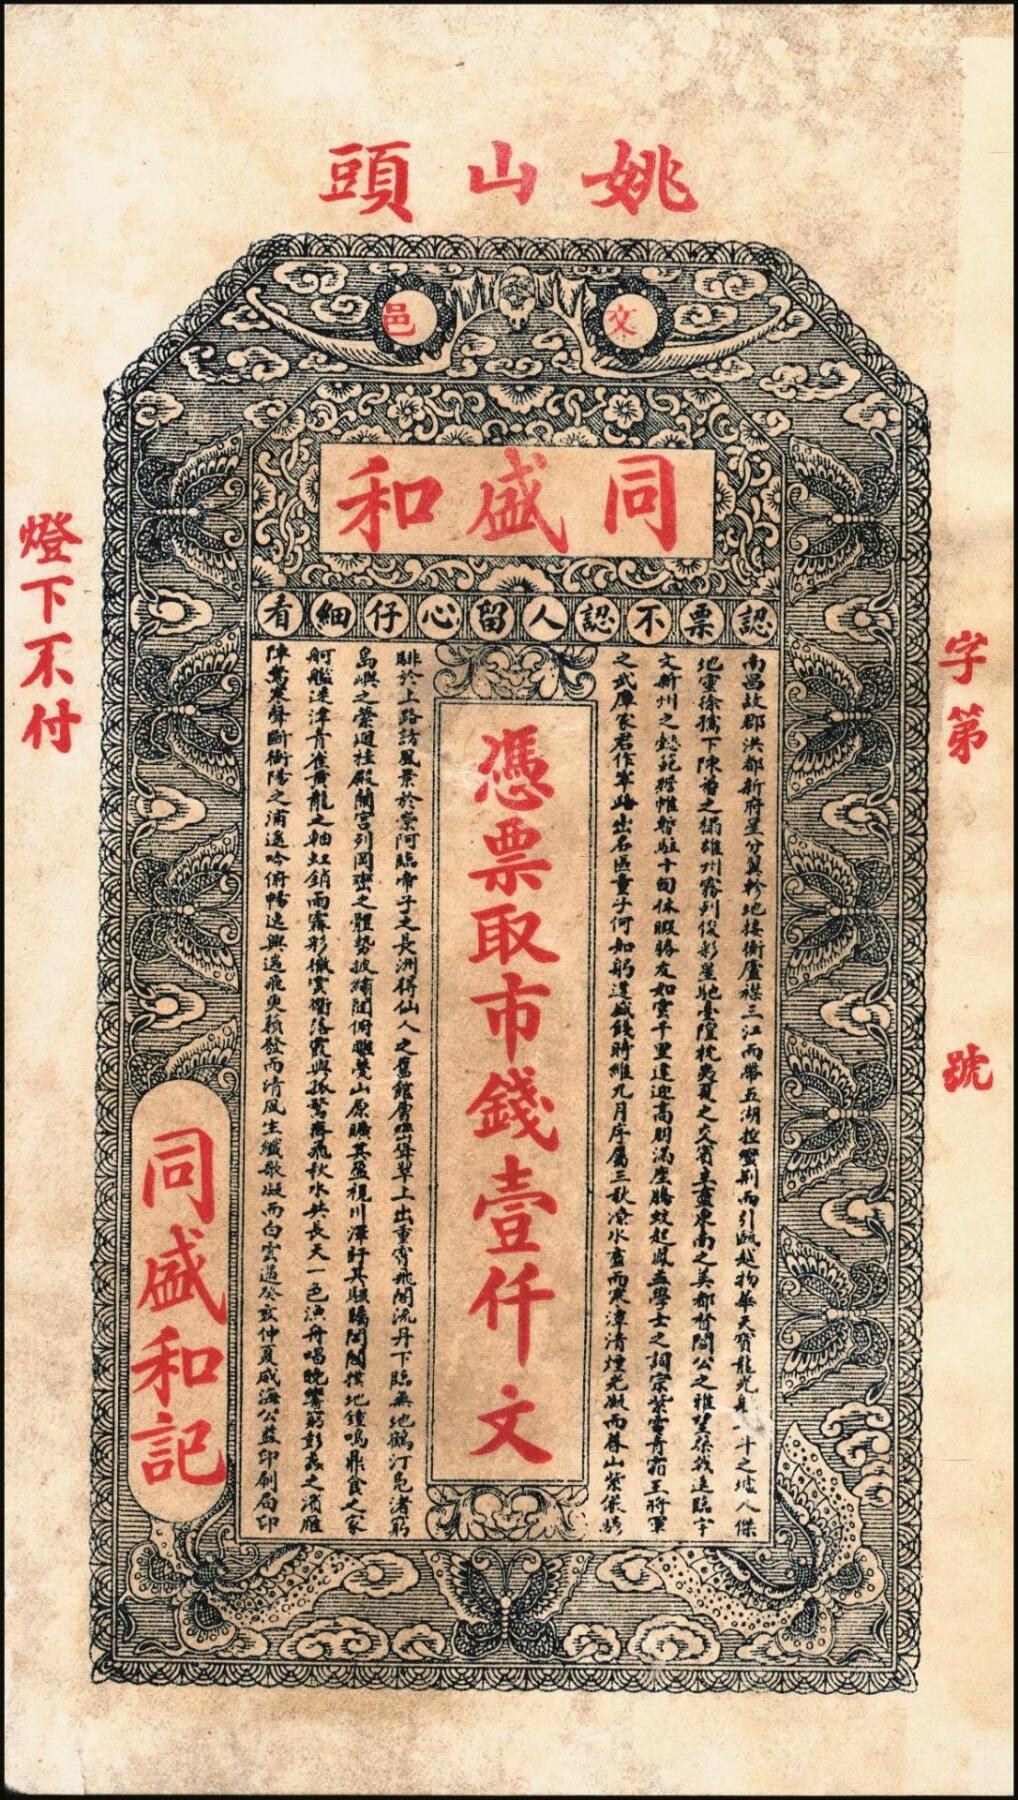 姚山頭
文邑
同盛和
認票不認人留心仔細看
南昌故郡洪都新府星分翼軫地接衡廬襟三江而帶五湖控蠻荊而引甌越物華天寶龍光射斗之墟人傑
地靈徐孺下陳蕃之榻雄州霧列俊彩星馳臺隍枕夷夏之交賓主盡東南之美都督閻公之雅望棨戟遙臨宇
文新州之懿範襜帷暫駐十旬休暇勝友如雲千里逢迎高朋滿座騰蛟起鳳孟學士之詞宗紫電青霜王將軍
之武庫家君作宰路出名區童子何知躬逢盛餞時維九月序屬三秋潦水盡而寒潭清煙光凝而暮山紫儼驂
憑票取市錢壹仟文
騑於上路訪風景於崇阿臨帝子之長洲得仙人之舊館層巒聳翠上出重霄飛閣流丹下臨無地鶴汀鳧渚窮
島嶼之縈迴桂殿蘭宮列岡巒之體勢披繡闥俯雕甍山原曠其盈視川澤盱其駭矚閭閻撲地鐘鳴鼎食之家
舸艦迷津青雀黃龍之軸虹銷雨霽彩徹雲衢落霞與孤鶩齊飛秋水共長天一色漁舟唱晚響窮彭蠡之濱雁
陣驚寒聲斷衡陽之浦遙吟俯暢逸興遄飛爽籟發而清風生纖歌凝而白雲遏癸亥仲夏威海公益印刷局印
同盛和記
字第號
燈下不付